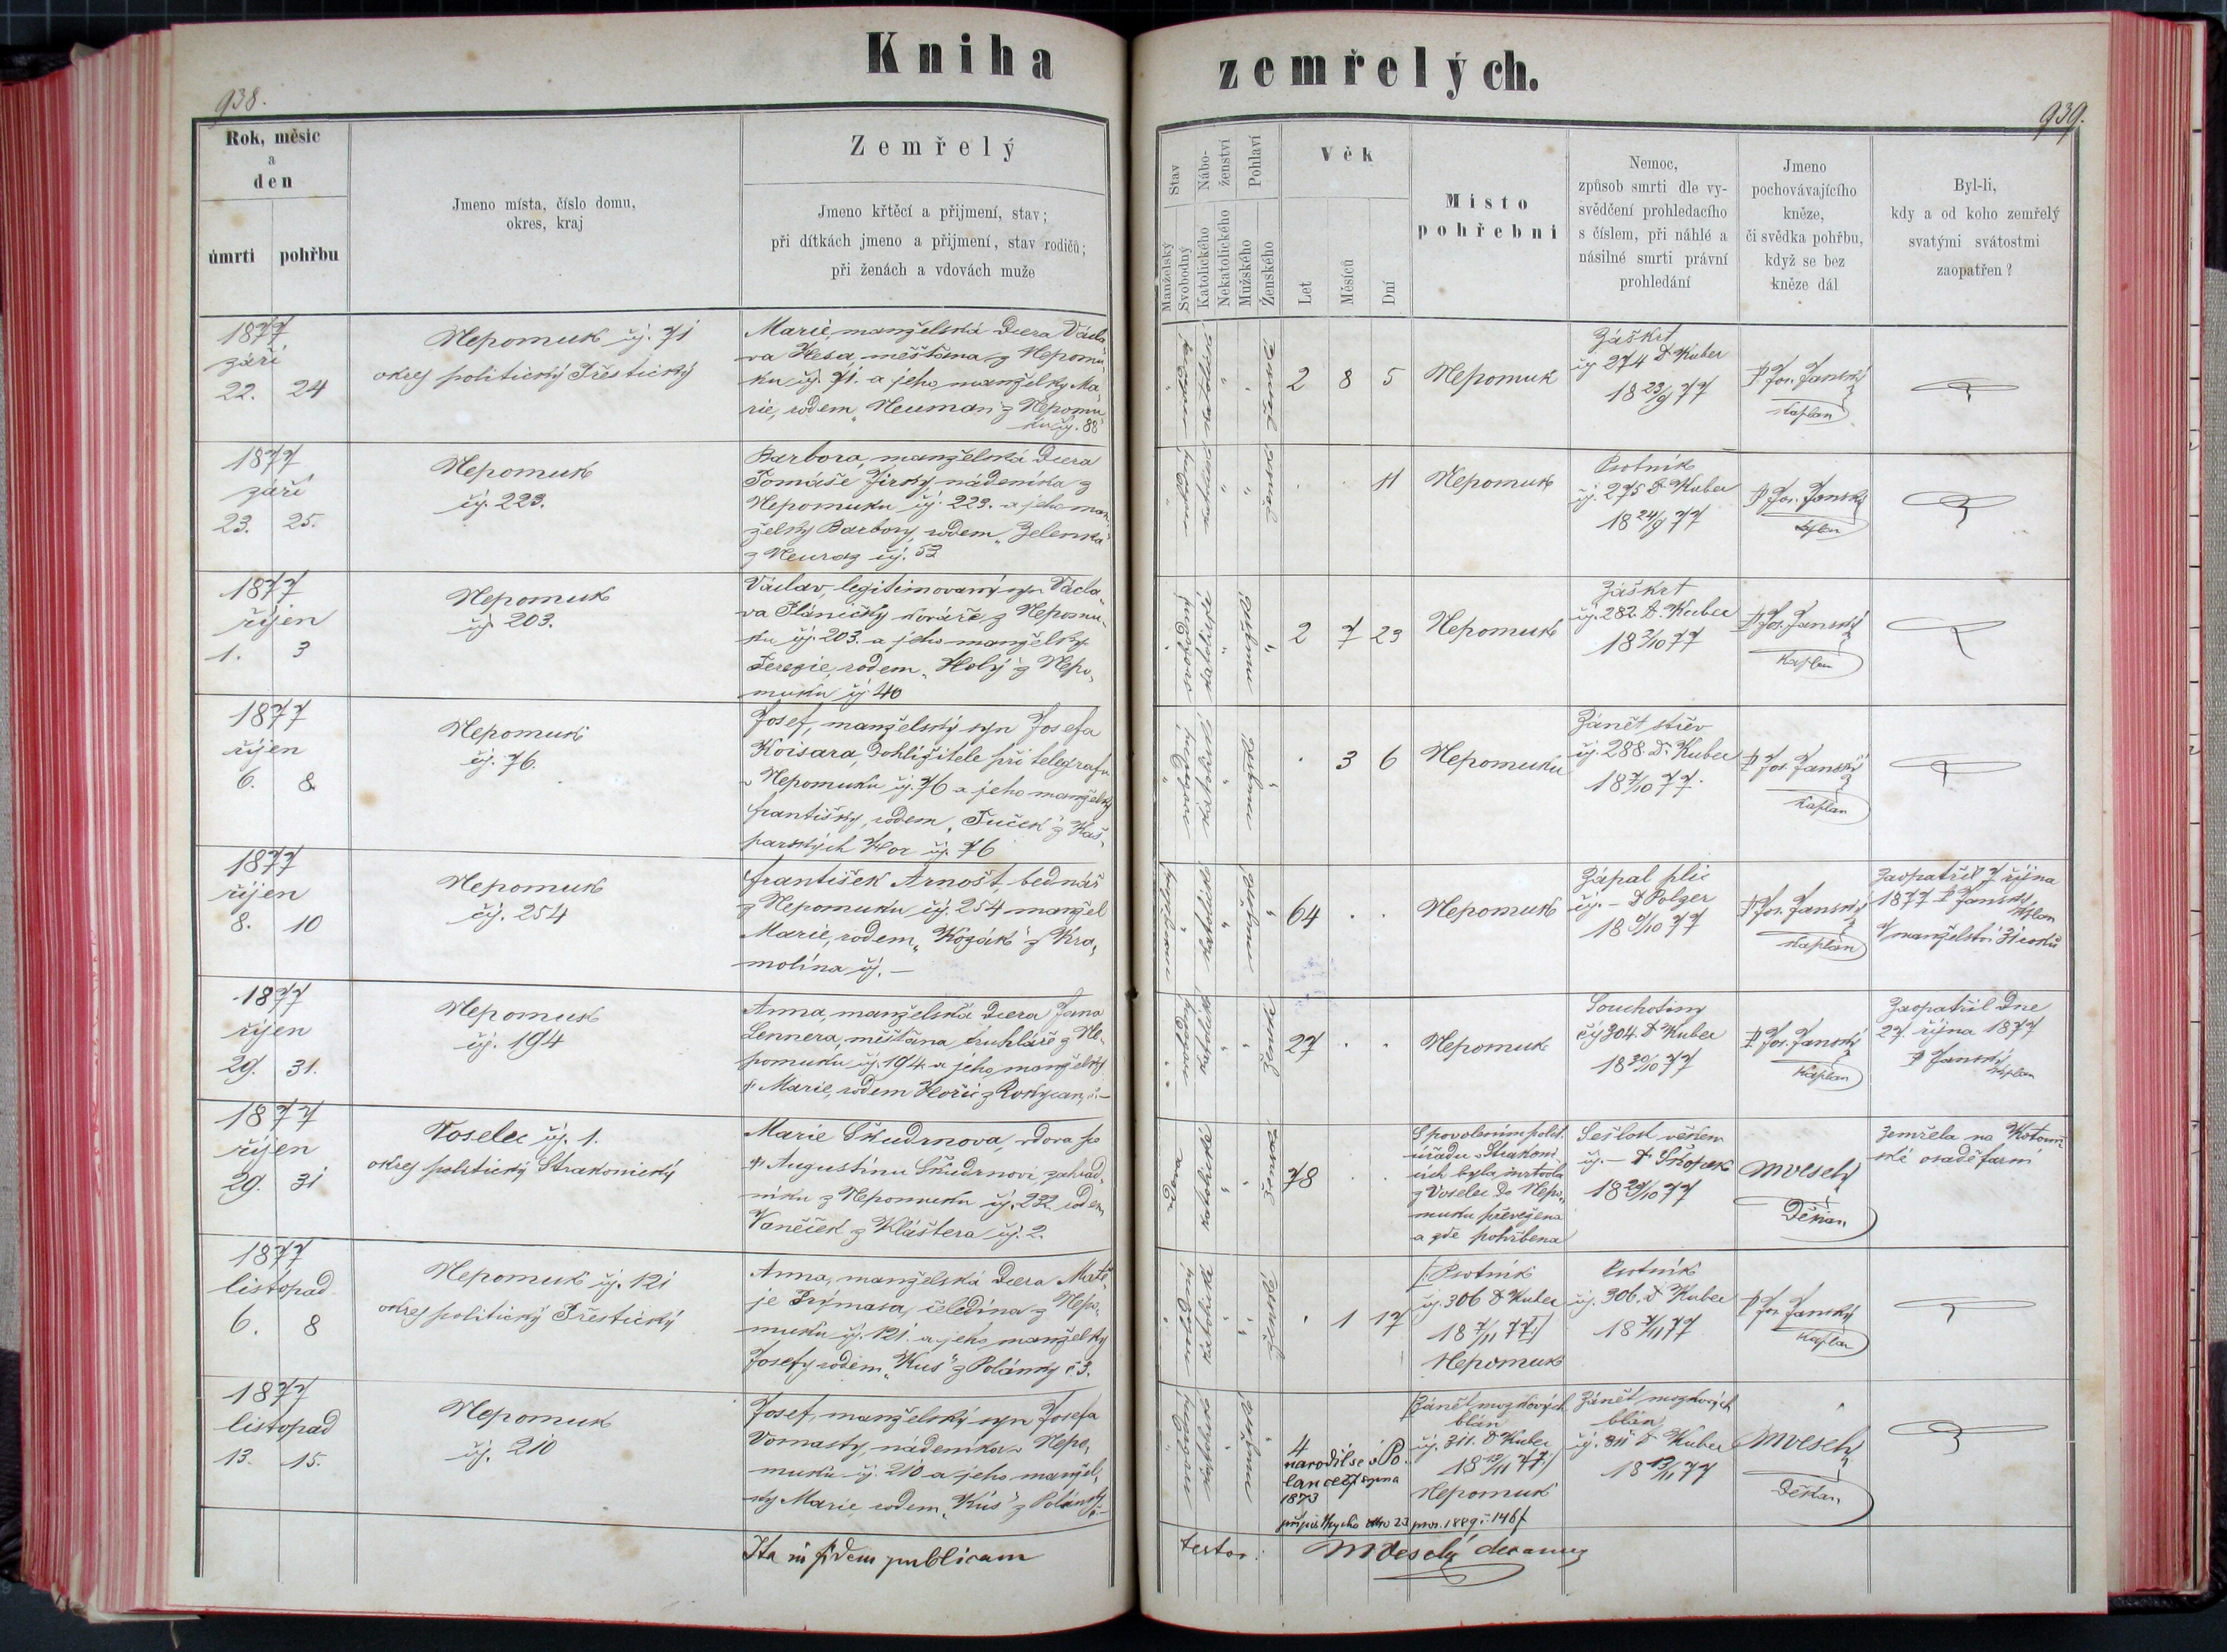 Kniha
zemřelých.
938.
939.
Rok, měsíc
a
den
úmrtí
pohřbu
Jmeno místa, číslo domu,
okres, kraj
Zemřelý
Jmeno křtěcí a přijmení, stav;
při dítkách jmeno a přijmení, stav rodičů;
při ženách a vdovách muže
Stav
Manželský
Svobodný
Nábo-
ženství
Katolického
Nekatolického
Pohlaví
Mužského
Ženského
Věk
Let
Měsíců
Dní
Místo
pohřební
Nemoc,
způsob smrti dle vy-
svědčení prohledacího
s číslem, při náhlé a
násilné smrti právní
prohledání
Jmeno
pochovávajícího
kněze,
či svědka pohřbu,
když se bez
kněze dál
Byl-li,
kdy a od koho zemřelý
svatými svátostmi
zaopatřen?
1877
září
22. 24
Nepomuk čj. 71
okres politický Přestický
Marie, manželská dcera Václa-
va Hesa, měšťana z Nepomu-
ku čj. 71. a jeho manželky Ma-
rie, rodem „Neuman" z Nepomu-
ku čj. 88
katolické
ženské
2 8 5
Nepomuk
Záškrt
čj 274 D. Kuber
18 23/9 77
P. Jos. Janský
kaplan
1877
září
23. 25.
Nepomuk
čj. 223.
Barbora, manželská dcera
Tomáše Jirsky, nádeníka z
Nepomuku čj. 223. a jeho man-
želky Barbory, rodem „Zelenka"
z Neuraz čj. 53
katolické
ženské
. . 11
Nepomuk
Psotník
čj. 275 D. Kuber
18 24/9 77
P. Jos. Janský
kaplan
1877
říjen
1. 3
Nepomuk
čj. 203.
Václav, legitimovaný syn Václa-
va Pláničky, kováře z Nepomu-
ku čj. 203. a jeho manželky
Terezie, rodem „Holý" z Nepo-
muku čj 40
katolické
2 7 23
Nepomuk
Záškrt
čj. 282. D. Kuber
18 2/10 77
P. Jos. Janský
kaplan
1877
říjen
6. 8
Nepomuk
čj. 76.
Josef, manželský syn Josefa
Koisara, dohlížitele při telegrafu
v Nepomuku čj. 76 a jeho manželky
Františky, rodem „Tuček" z Kaš-
parských Hor čj. 76
katolické
. 3 6
Nepomuku
Zánět střev
čj. 288. D. Kuber
18 7/10 77.
P. Jos. Janský
kaplan
1877
říjen
8. 10
Nepomuk
čj. 254
František Arnošt, bednář
z Nepomuku čj. 254 manžel
Marie, rodem „Kozák" z Kra-
molína čj. –
katolické
64 . .
Nepomuk
Zápal plic
čj. – D Polger
18 9/10 77
P. Jos. Janský
kaplan
Zaopatřil 7 října
1877 P. Janský
kaplan
V manželství 31 roků
1877
říjen
29. 31.
Nepomuk
čj. 194
Anna, manželská dcera Jana
Lennera, měšťana truhláře z Ne-
pomuku čj. 194 a jeho manželky
† Marie, rodem Hořic z Rokycan, č. –
katolické
ženské
27 . .
Nepomuk
Souchotiny
čj 304. D Kuber
18 30/10 77
P. Jos. Janský
kaplan
Zaopatřil dne
27. října 1877
P Janský
kaplan
1877
říjen
29. 31
Voselec čj. 1.
okres politický Strakonický
Marie Škudrnova, vdova po
† Augustinu Škudrnovi, zahrad-
níku z Nepomuku čj. 232 rodem
Vaněček z Kláštera čj. 2.
katolické
ženské
78 . .
S povolením polit.
úřadu v Strakoni-
cích byla mrtvola
z Voselec do Nepo-
muku převežena
a zde pohřbena
Sešlost věkem
čj. – D Skopek
18 29/10 77
MVeselý
Děkan
Zemřela na Kotouň-
ské osadě farní
1877
listopad
6. 8
Nepomuk čj. 121
okres politický Přestický
Anna, manželská dcera Matě-
je Trýmasa, čeledína z Nepo-
muku čj. 121. a jeho manželky
Josefy, rodem „Kus" z Polánky č. 3.
katolické
ženské
. 1 17
/: Psotník
čj. 306 D Kuber
18 7/11 77 :/
Nepomuk
Psotník
čj. 306. D Kuber
18 7/11 77
P. Jos. Janský
kaplan
1877
listopad
13. 15.
Nepomuk
čj. 210
Josef, manželský syn Josefa
Vomasty, nádeníka v Nepo-
muku čj. 210 a jeho manžel-
ky Marie, rodem „Kus" z Polánky
č. –
katolické
4
narodil se v Po-
lance 27 srpna
1873
/: Zánět mozkových
blán
čj. 311. D Kuber
18 13/11 77 :/
Nepomuk
Zánět mozkových
blán
čj. 311 D Kuber
18 13/11 77
MVeselý
Děkan
Ita in fidem publicam
testor:
MVeselý decanus